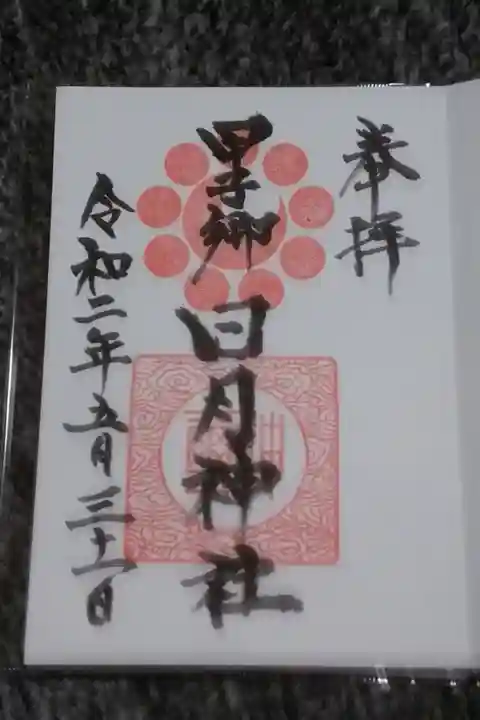 奉拝
甲子郷 日月神社
令和二年五月三十一日